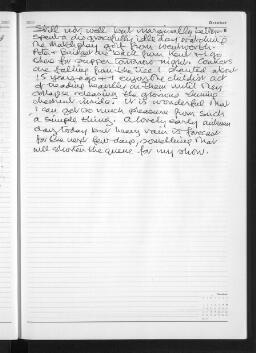 October
Still not well but marginally better.
Spent a disgracefully idle day watching
the Matchplay golf from Wentworth.
Peter & Bridget are back from Kent so go
over for supper tomorrow night. Conkers
are falling from the tree I planted about
15 years ago & I enjoy the childish act
of treading heavily on them until they
collapse, releasing the glorious shining
chestnut inside. It is wonderful that
I can get so much pleasure from such
a simple thing. A lovely early autumn
day today but heavy rain is forecast
for the next few days, something that
will shorten the queue for my show.